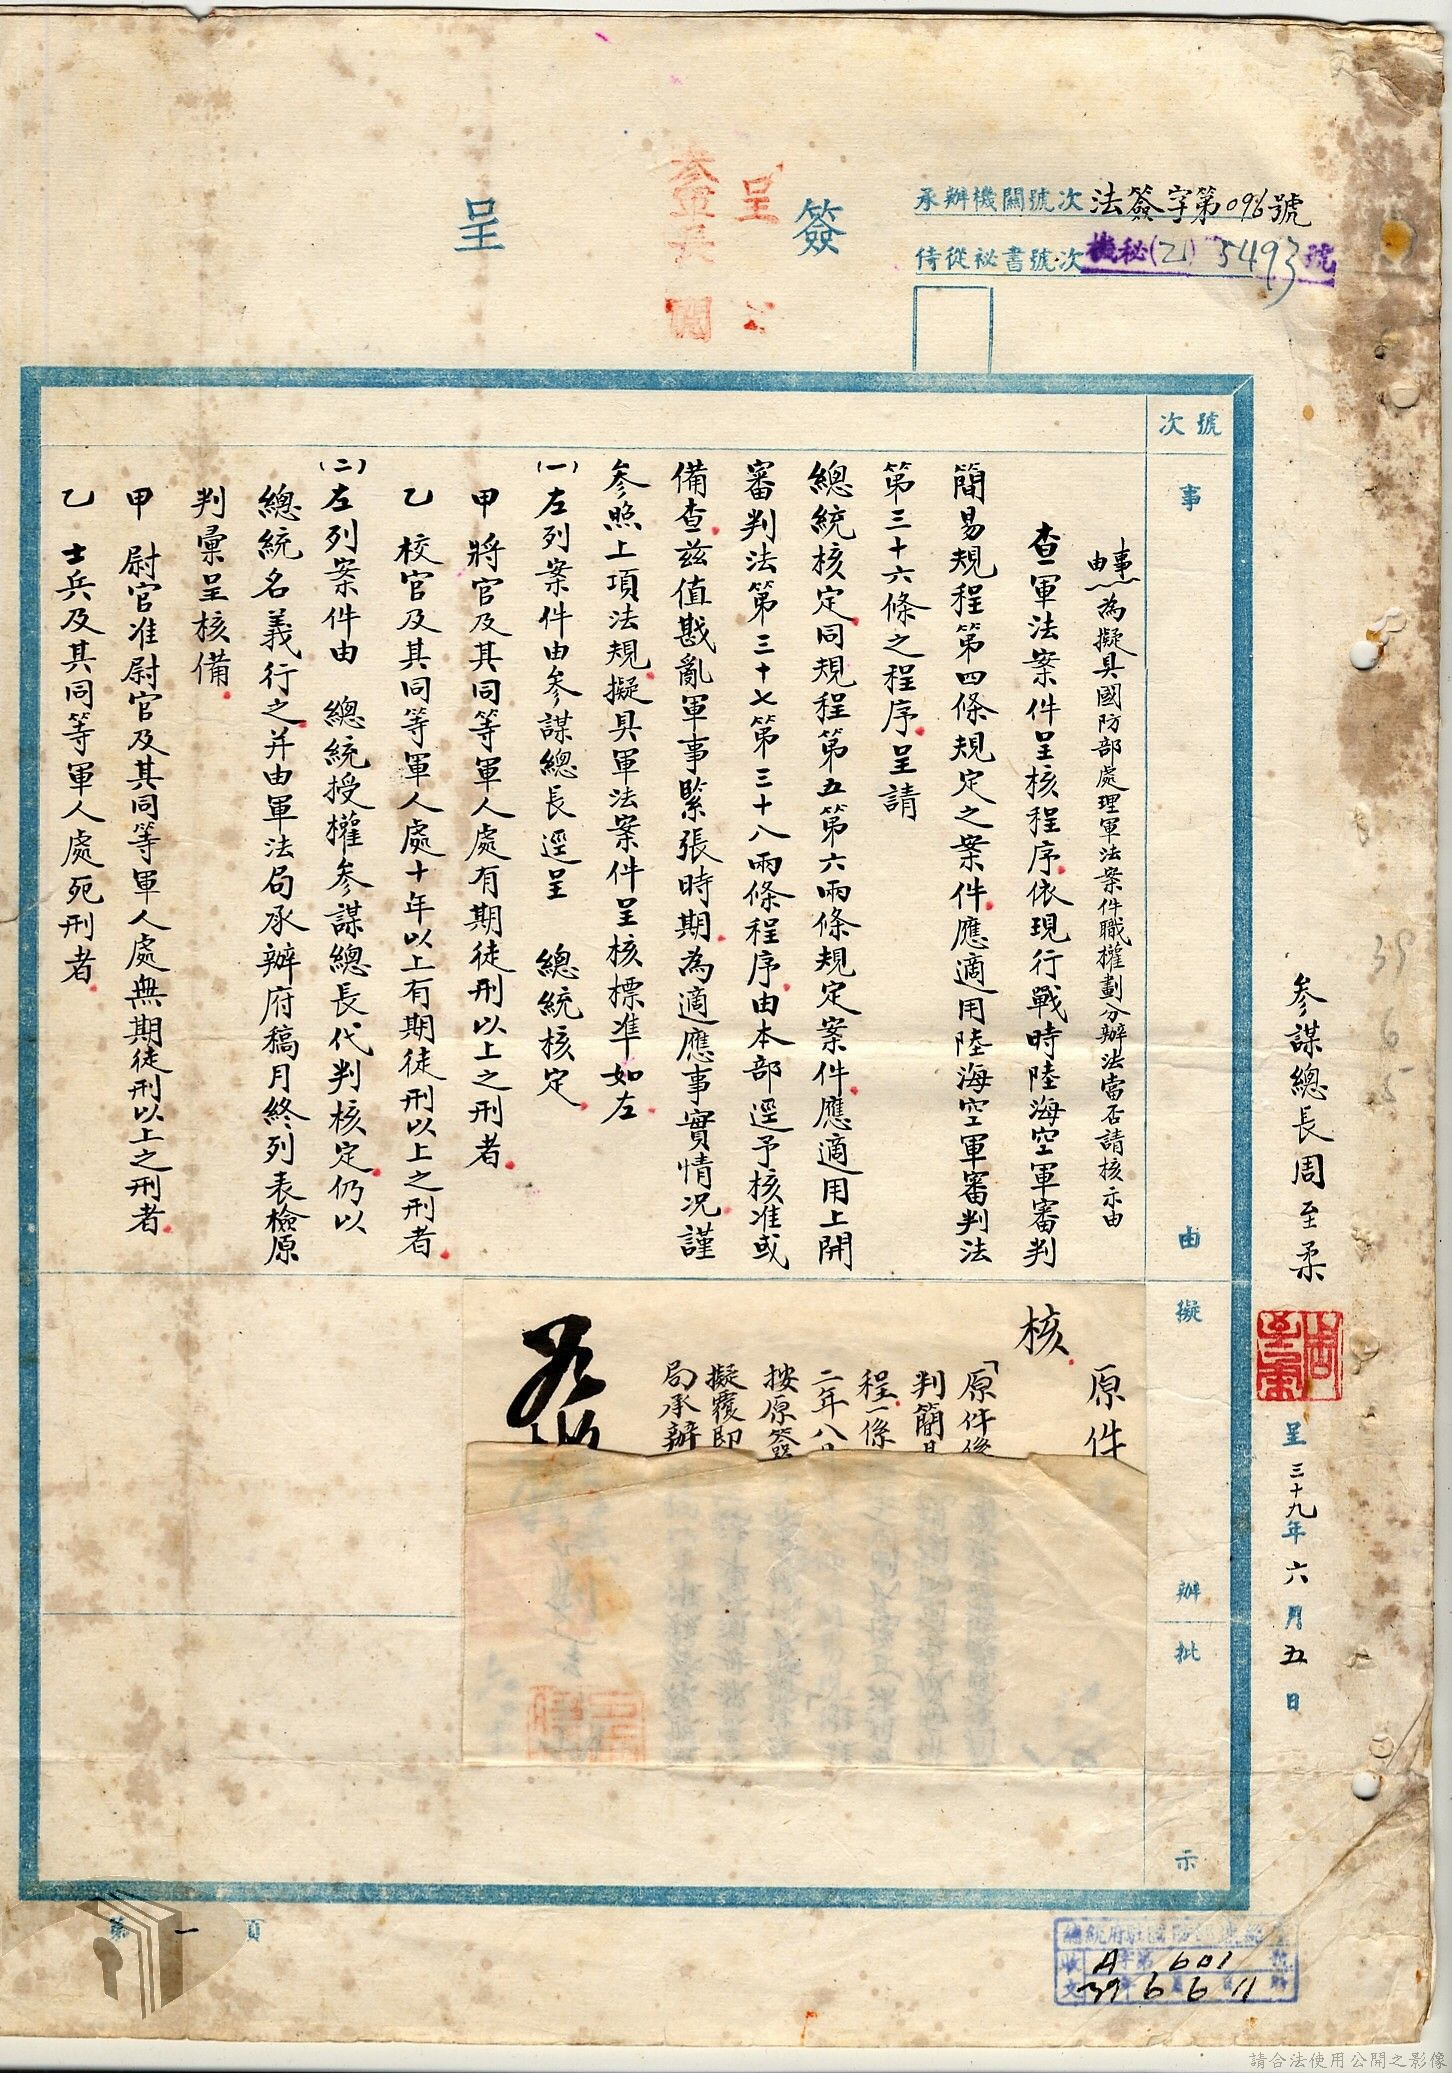 簽呈
呈
參軍長
閱
承辦機關號次 法簽字第096號
侍從祕書號次 機秘(乙)5493號
參謀總長周至柔
呈 三十九年六月五日
39
6
5
號次
事由
擬辦
批示
事由 為擬具國防部處理軍法案件職權劃分辦法當否請核示由
查軍法案件呈核程序依現行戰時陸海空軍審判
簡易規程第四條規定之案件應適用陸海空軍審判法
第三十六條之程序呈請
總統核定同規程第五第六兩條規定案件應適用上開
審判法第三十七第三十八兩條程序由本部逕予核准或
備查茲值戡亂軍事緊張時期為適應事實情況謹
參照上項法規擬具軍法案件呈核標準如左
(一)左列案件由參謀總長逕呈 總統核定
甲 將官及其同等軍人處有期徒刑以上之刑者
乙 校官及其同等軍人處十年以上有期徒刑以上之刑者
(二)左列案件由 總統授權參謀總長代判核定仍以
總統名義行之并由軍法局承辦府稿月終列表檢原
判彙呈核備
甲 尉官准尉官及其同等軍人處無期徒刑以上之刑者
乙 士兵及其同等軍人處死刑者
原件
核
「原件後
判簡易
程一條
二年八月
按原簽
擬覆即
局承辦
第一頁
收文 A字第601號
39年6月6日11時
請合法使用公開之影像